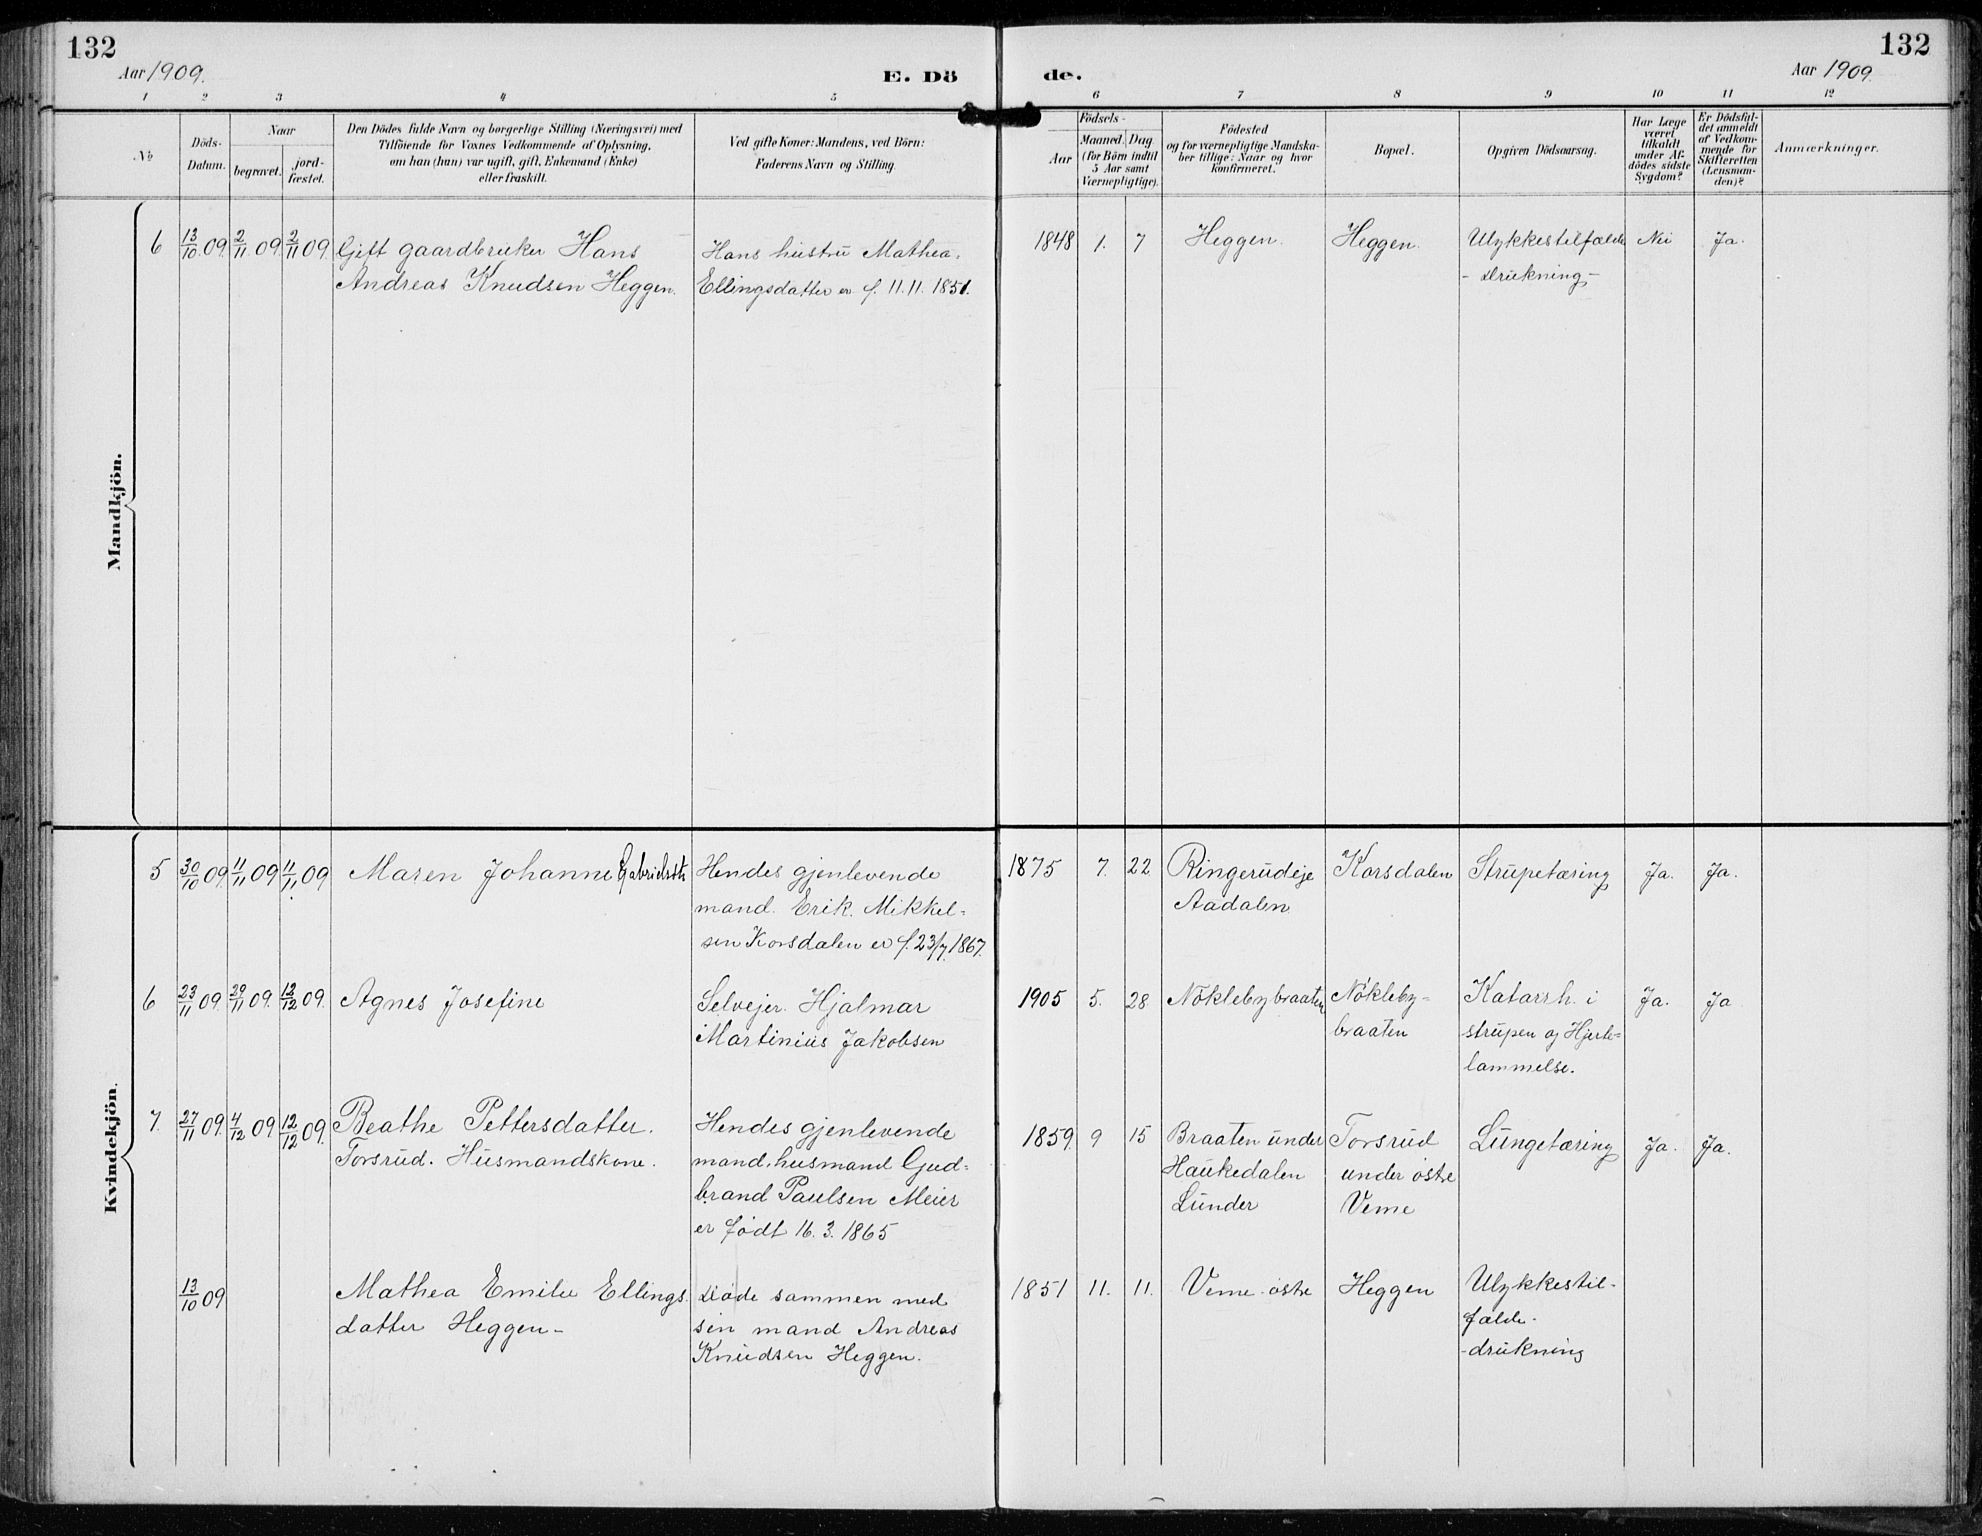 132
Aar 1909.
E. Dö
de.
132
Aar 1909.
1 2 3 4 5 6 7 8 9 10 11 12
No
Döds-
Datum.
Naar
begravet.
jord-
fæstet.
Den Dödes fulde Navn og borgerlige Stilling (Næringsvei) med
Tilföiende for Voxnes Vedkommende af Oplysning,
om han (hun) var ugift, gift, Enkemand (Enke)
eller fraskilt.
Ved gifte Koner: Mandens, ved Börn:
Faderens Navn og Stilling.
Födsels-
Aar
Maaned. Dag
(for Börn indtil
5 Aar samt
Værnepligtige).
Födested
og for værnepligtige Mandska-
ber tillige: Naar og hvor
konfirmeret.
Bopæl.
Opgiven Dödsaarsag.
Har Læge
været
tilkaldt
under Af-
dödes sidste
Sygdom?
Er Dödsfal-
det anmeldt
af Vedkom-
mende for
Skifteretten
(Lensman-
den)?
Anmærkninger.
Mandkjön.
6 13/10 09. 2/11 09. 2/11 09. Gift gaardbruker Hans
Andreas Knudsen Heggen.
Hans hustru Mathea
Ellingsdatter er f. 11.11. 1851.
1848 1. 7 Heggen. Heggen. Ulykkestilfælde Nei Ja.
- Drukning -
Kvindekjön.
5 30/10 09. 11/11 09 11/11 09 Maren Johanne Gabrielsdtr
Hendes gjenlevende
mand. Erik. Mikkel-
sen Korsdalen er f. 23/7. 1867.
1875 7. 22 Ringerudeje Korsdalen Strupetæring Ja. Ja.
Aadalen
6 23/11 09. 29/11 09. 12/12 09. Agnes Josefine
Selvejer. Hjalmar
Martinius Jakobsen
1905 5. 28 Nöklebybraaten Nökleby- Katarrh. i Ja. Ja
braaten strupen og Hjerte-
lammelse.
7. 27/11 09. 4/12 09 12/12 09. Beathe Pettersdatter.
Torsrud. Husmandskone.
Hendes gjenlevende
mand, husmand Gud-
brand Paulsen Meier
er født 16. 3. 1865
1859. 9 15 Braaten under Torsrud Lungetæring Ja. Ja.
Haukedalen under östre
Lunder Veme
13/10 09 Mathea Emilie Ellings
datter Heggen -
Døde sammen med
sin mand Andreas
Knudsen Heggen.
1851 11. 11. Veme östre Heggen Ulykkestil-
fælde-
- drukning